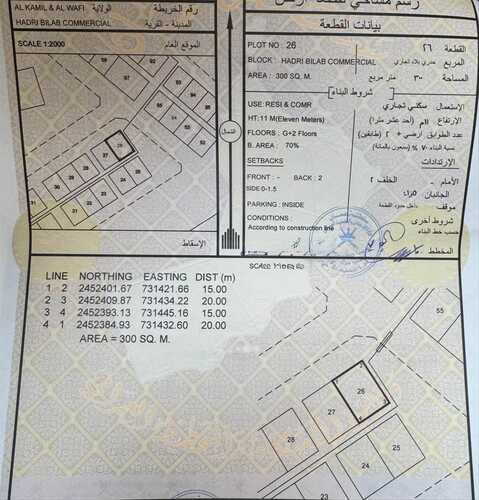 رسم مساحي لقطعة أرض
AL KAMIL & AL WAFI الولاية
رقم الخريطة
HADRI BILAB COMMERCIAL المدينة - القرية
بيانات القطعة
SCALE 1:2000 الموقع العام
PLOT NO : 26 القطعة ٢٦
BLOCK : HADRI BILAB COMMERCIAL المربع
AREA : 300 SQ. M. المساحة ٣٠٠ متر مربع
شروط البناء
USE: RESI & COMR الإستعمال سكني تجاري
HT: 11 M(Eleven Meters) الإرتفاع ١١م (أحد عشر مترا)
FLOORS : G+2 Floors عدد الطوابق أرضي + ٢ (طابقين)
B. AREA : 70% نسبة البناء ٧٠ % (سبعون بالمائة)
SETBACKS الإرتدادات
FRONT : - BACK : 2 الأمام - الخلف ٢
SIDE 0-1.5 الجانبان
PARKING : INSIDE موقف داخل حدود القطعة
CONDITIONS : شروط أخرى
According to construction line حسب خط البناء
المخطط
الشمال
الإسقاط
LINE NORTHING EASTING DIST (m)
1 2 2452401.67 731421.66 15.00
2 3 2452409.87 731434.22 20.00
3 4 2452393.13 731445.16 15.00
4 1 2452384.93 731432.60 20.00
AREA = 300 SQ. M.
55
26
27
28
25
24
23